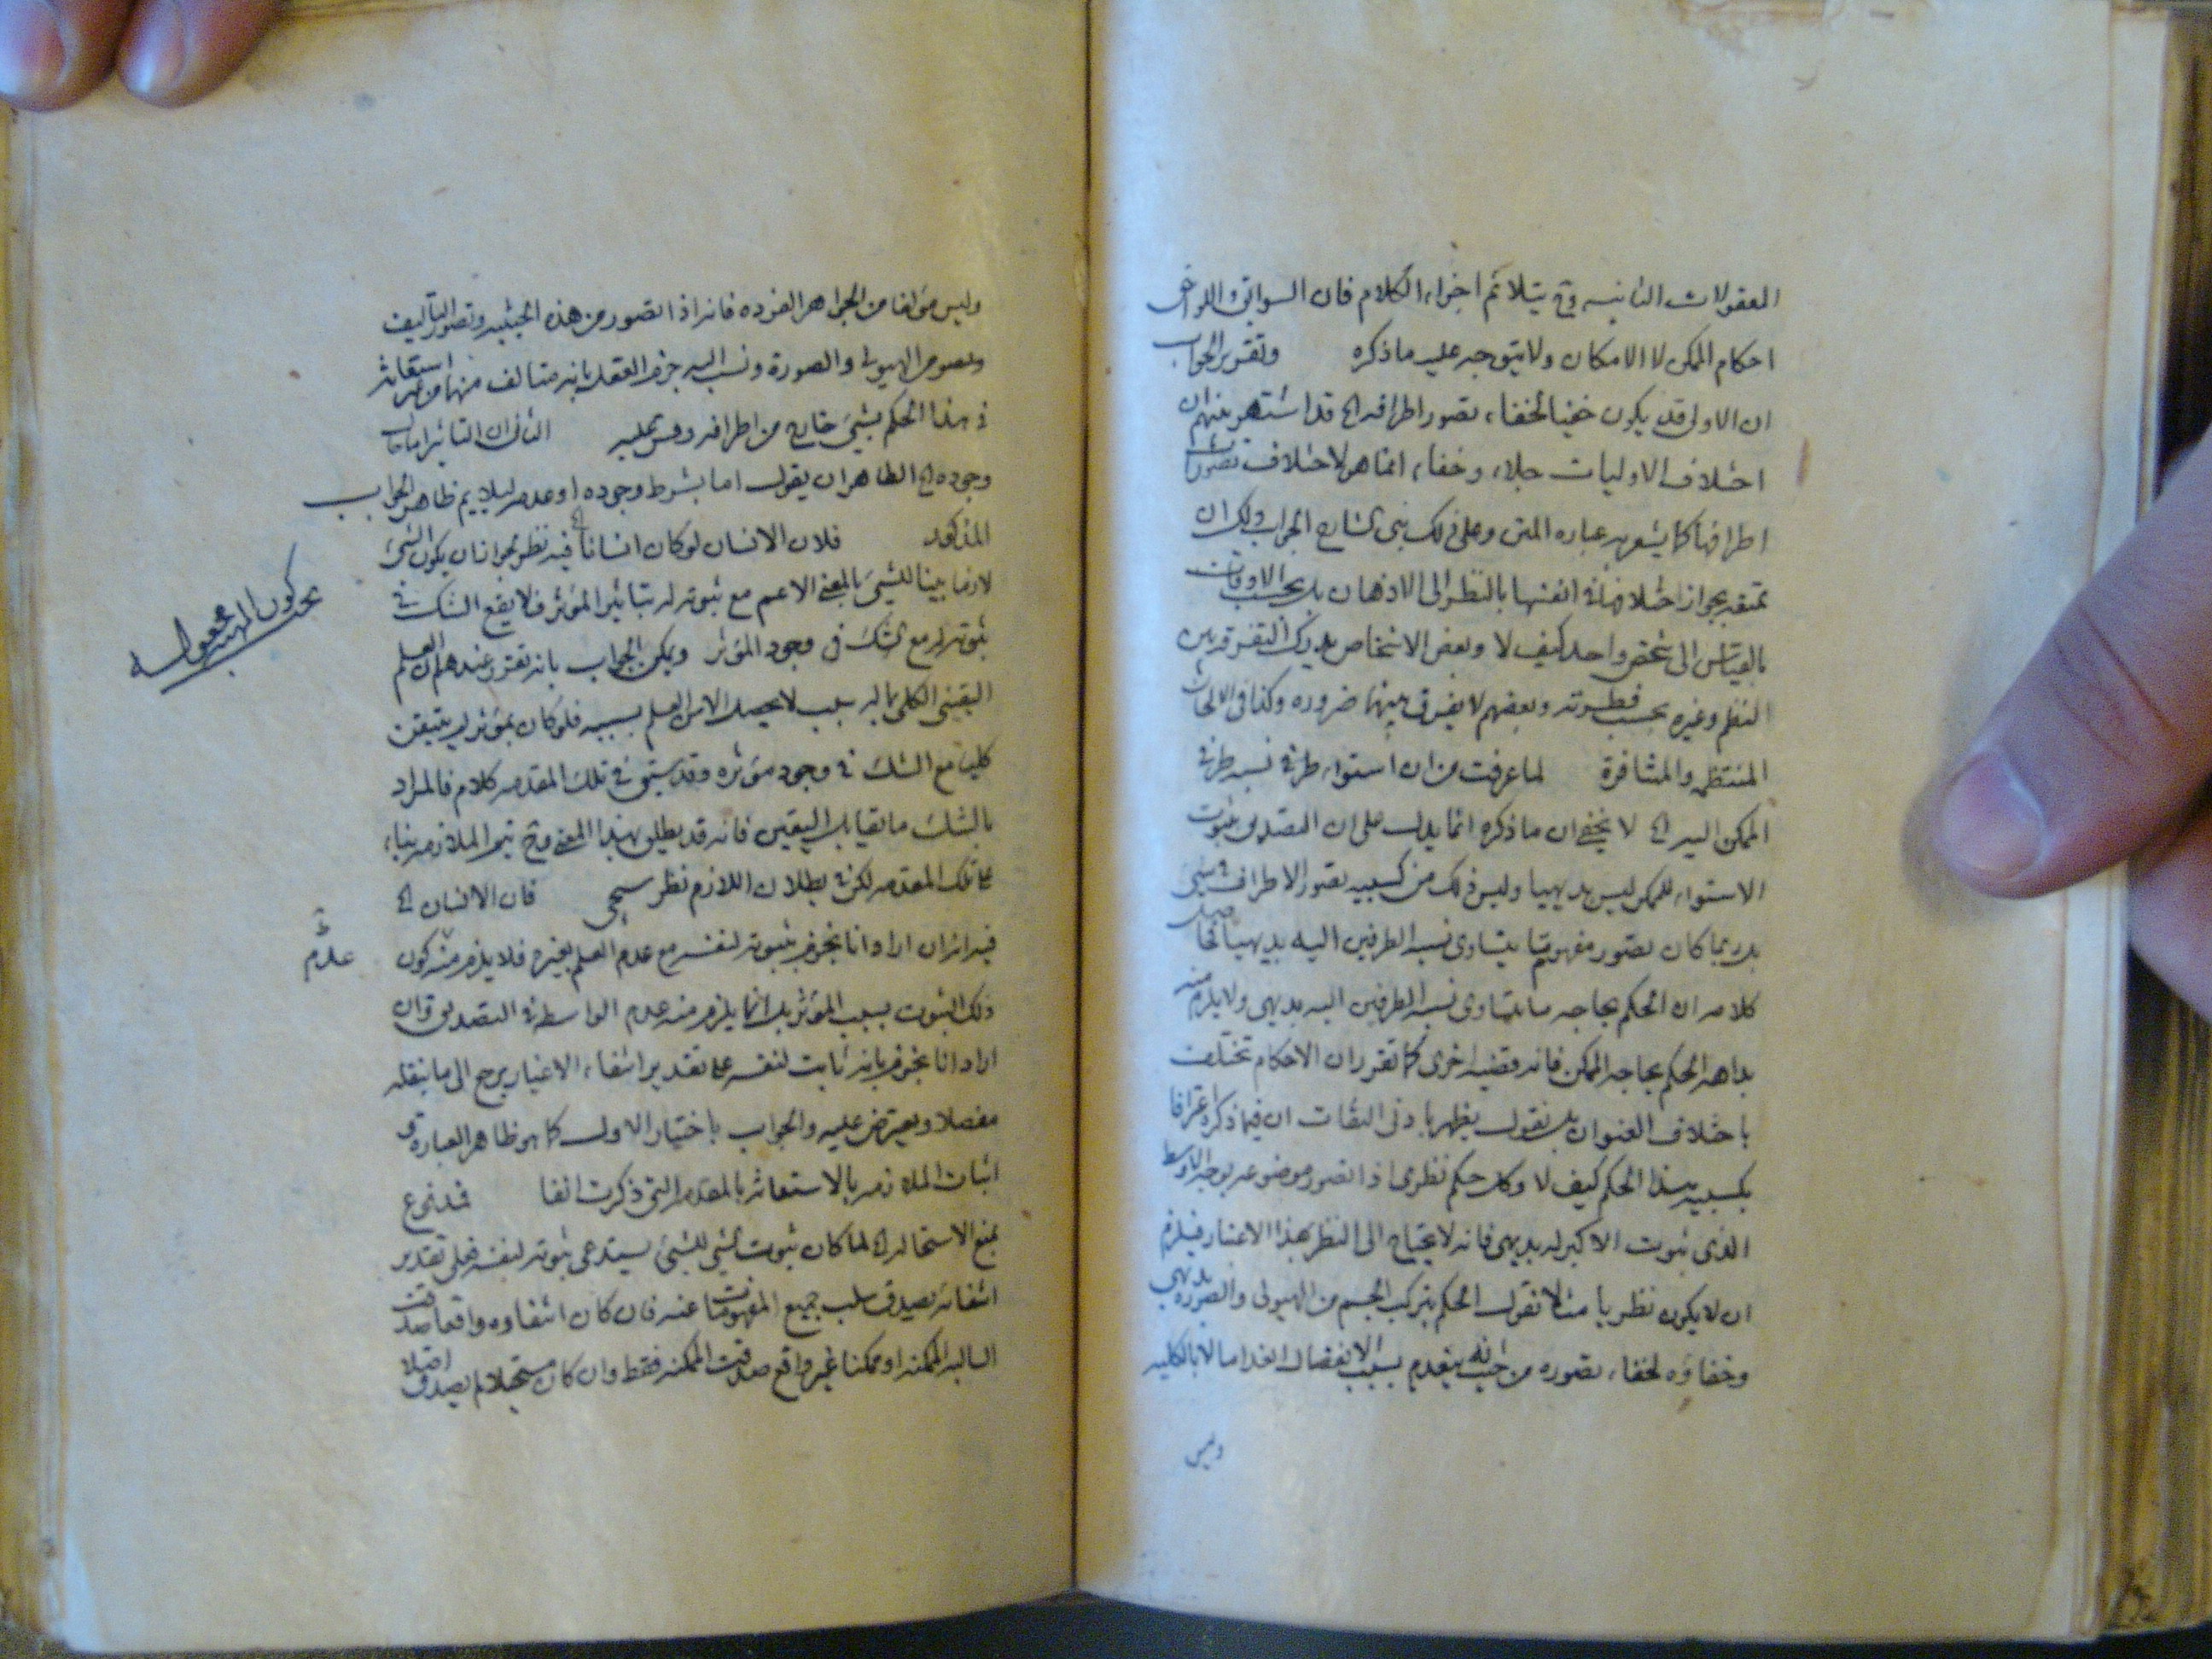 المعقولات الثانية وح يتلائم اجزاء الكلام فان السوابق واللواحق
احكام الممكن لا الامكان ولا يتوجه عليه ما ذكره وتقرير الجواب
ان الاولى قد يكون خفيا لخفاء تصور اطرافه الخ قد اشتهر بينهم ان
اختلاف الاوليات جلاء وخفاء انما هو لاختلاف تصورات
اطرافها كما يشعر به عباره المتن وعلى ذلك بنى الشارح الجواب ولك ان
تمنعه بجواز اختلافها في انفسها بالنظر الى الاذهان بل بحسب الاوقات
بالقياس الى شخص واحد كيف لا وبعض الاشخاص يدرك التفرقة بين
النظم وغيره بحسب فطرته وبعضهم لا يفرق بينهما ضروره وكذا في الالحان
المنتظمه والمتنافرة لما عرفت من ان استواء طرفي نسبه طرفي
الممكن اليه الخ لا يخفى ان ما ذكره انما يدل على ان التصديق بثبوت
الاستواء للممكن ليس بديهيا وليس ذلك من كسبيه تصور الاطراف في شيئ
بل ربما كان تصور مفهوم ما يتساوى نسبه الطرفين اليه بديهيا فحاصل
كلامه ان الحكم بحاجه ما يتساوى نسبه الطرفين اليه بديهي ولا يلزم منه
بداهه الحكم بحاجه الممكن فانه قضيه اخرى كما تقرر ان الاحكام تختلف
باختلاف العنوان بل نقول يظهر بادنى التفات ان فيما ذكره اعترافا
بكسبيه هذا الحكم كيف لا وكل حكم نظرى اذا تصور موضوعه بوجه الاوسط
الذى ثبوت الاكبر له بديهي فانه لا يحتاج الى النظر بهذا الاعتبار فيلزم
ان لا يكون نظريا مثلا نقول الحكم بتركب الجسم من الهيولى والصوره بديهي
وخفاؤه لخفاء تصوره من حيث انه ينعدم بسبب الانفصال انعداما لا بالكليه
وليس
وليس مؤلفا من الجواهر الفرده فانه اذا تصور من هذه الحيثيه وتصور التأليف
وتصور الهيولى والصورة ونسب اليه جزم العقل بانه متألف منهما من غير استعانة
في هذا الحكم بشيئ خارج من اطرافه وقس عليه الثاني ان التاثير اما حال
وجوده الخ الظاهر ان يقول اما بشرط وجوده او عدمه ليلايم ظاهر الجواب
المذكور فلان الانسان لو كان انسانا الخ فيه نظر لجواز ان يكون الشيئ
لازما بينا للشيئ بالمعنى الاعم مع ثبوته له بتاثير المؤثر فلا يقع الشك في
ثبوته له مع الشك في وجود المؤثر ويمكن الجواب بانه تقرر عندهم ان العلم
اليقيني الكلي بما له سبب لا يحصل الا من العلم بسببه فلو كان بمؤثر لم يتيقن
كليا مع الشك في وجود مؤثره وقد سبق في تلك المقدمه كلام فالمراد
بالشك ما يقابل اليقين فانه قد يطلق بهذا المعنى وح يتم الملازمه بناء
على تلك المقدمه لكن في بطلان اللازم نظر سيجي فان الانسان الخ
فيه انه ان اراد انا نجزم بثبوته لنفسه مع عدم العلم بغيره فلا يلزم منه كون
عدم
ذلك الثبوت بسبب المؤثر بل انما يلزم منه عدم الواسطه في التصديق وان
اراد انا نجزم بانه ثابت لنفسه على تقدير انتفاء الاغيار يرجع الى ما ينقله
مفصلا ويعترض عليه والجواب باختيار الاول كما هو ظاهر العباره و
اثبات الملازمه بالاستعانة بالمقدمه التي ذكرت انفا فمدفوع
بمنع الاستحاله الخ لما كان ثبوت الشيئ للشيئ يستدعي ثبوته لنفسه فعلى تقدير
انتفائه يصدق سلب جميع المفهومات عنه فان كان انتفاوه واقعا صدقت
السالبه الممكنه او ممكنا غير واقع صدقت الممكنه فقط وان كان مستحيلا لم يصدق اصلا
بحث كون المهيه مجعوله